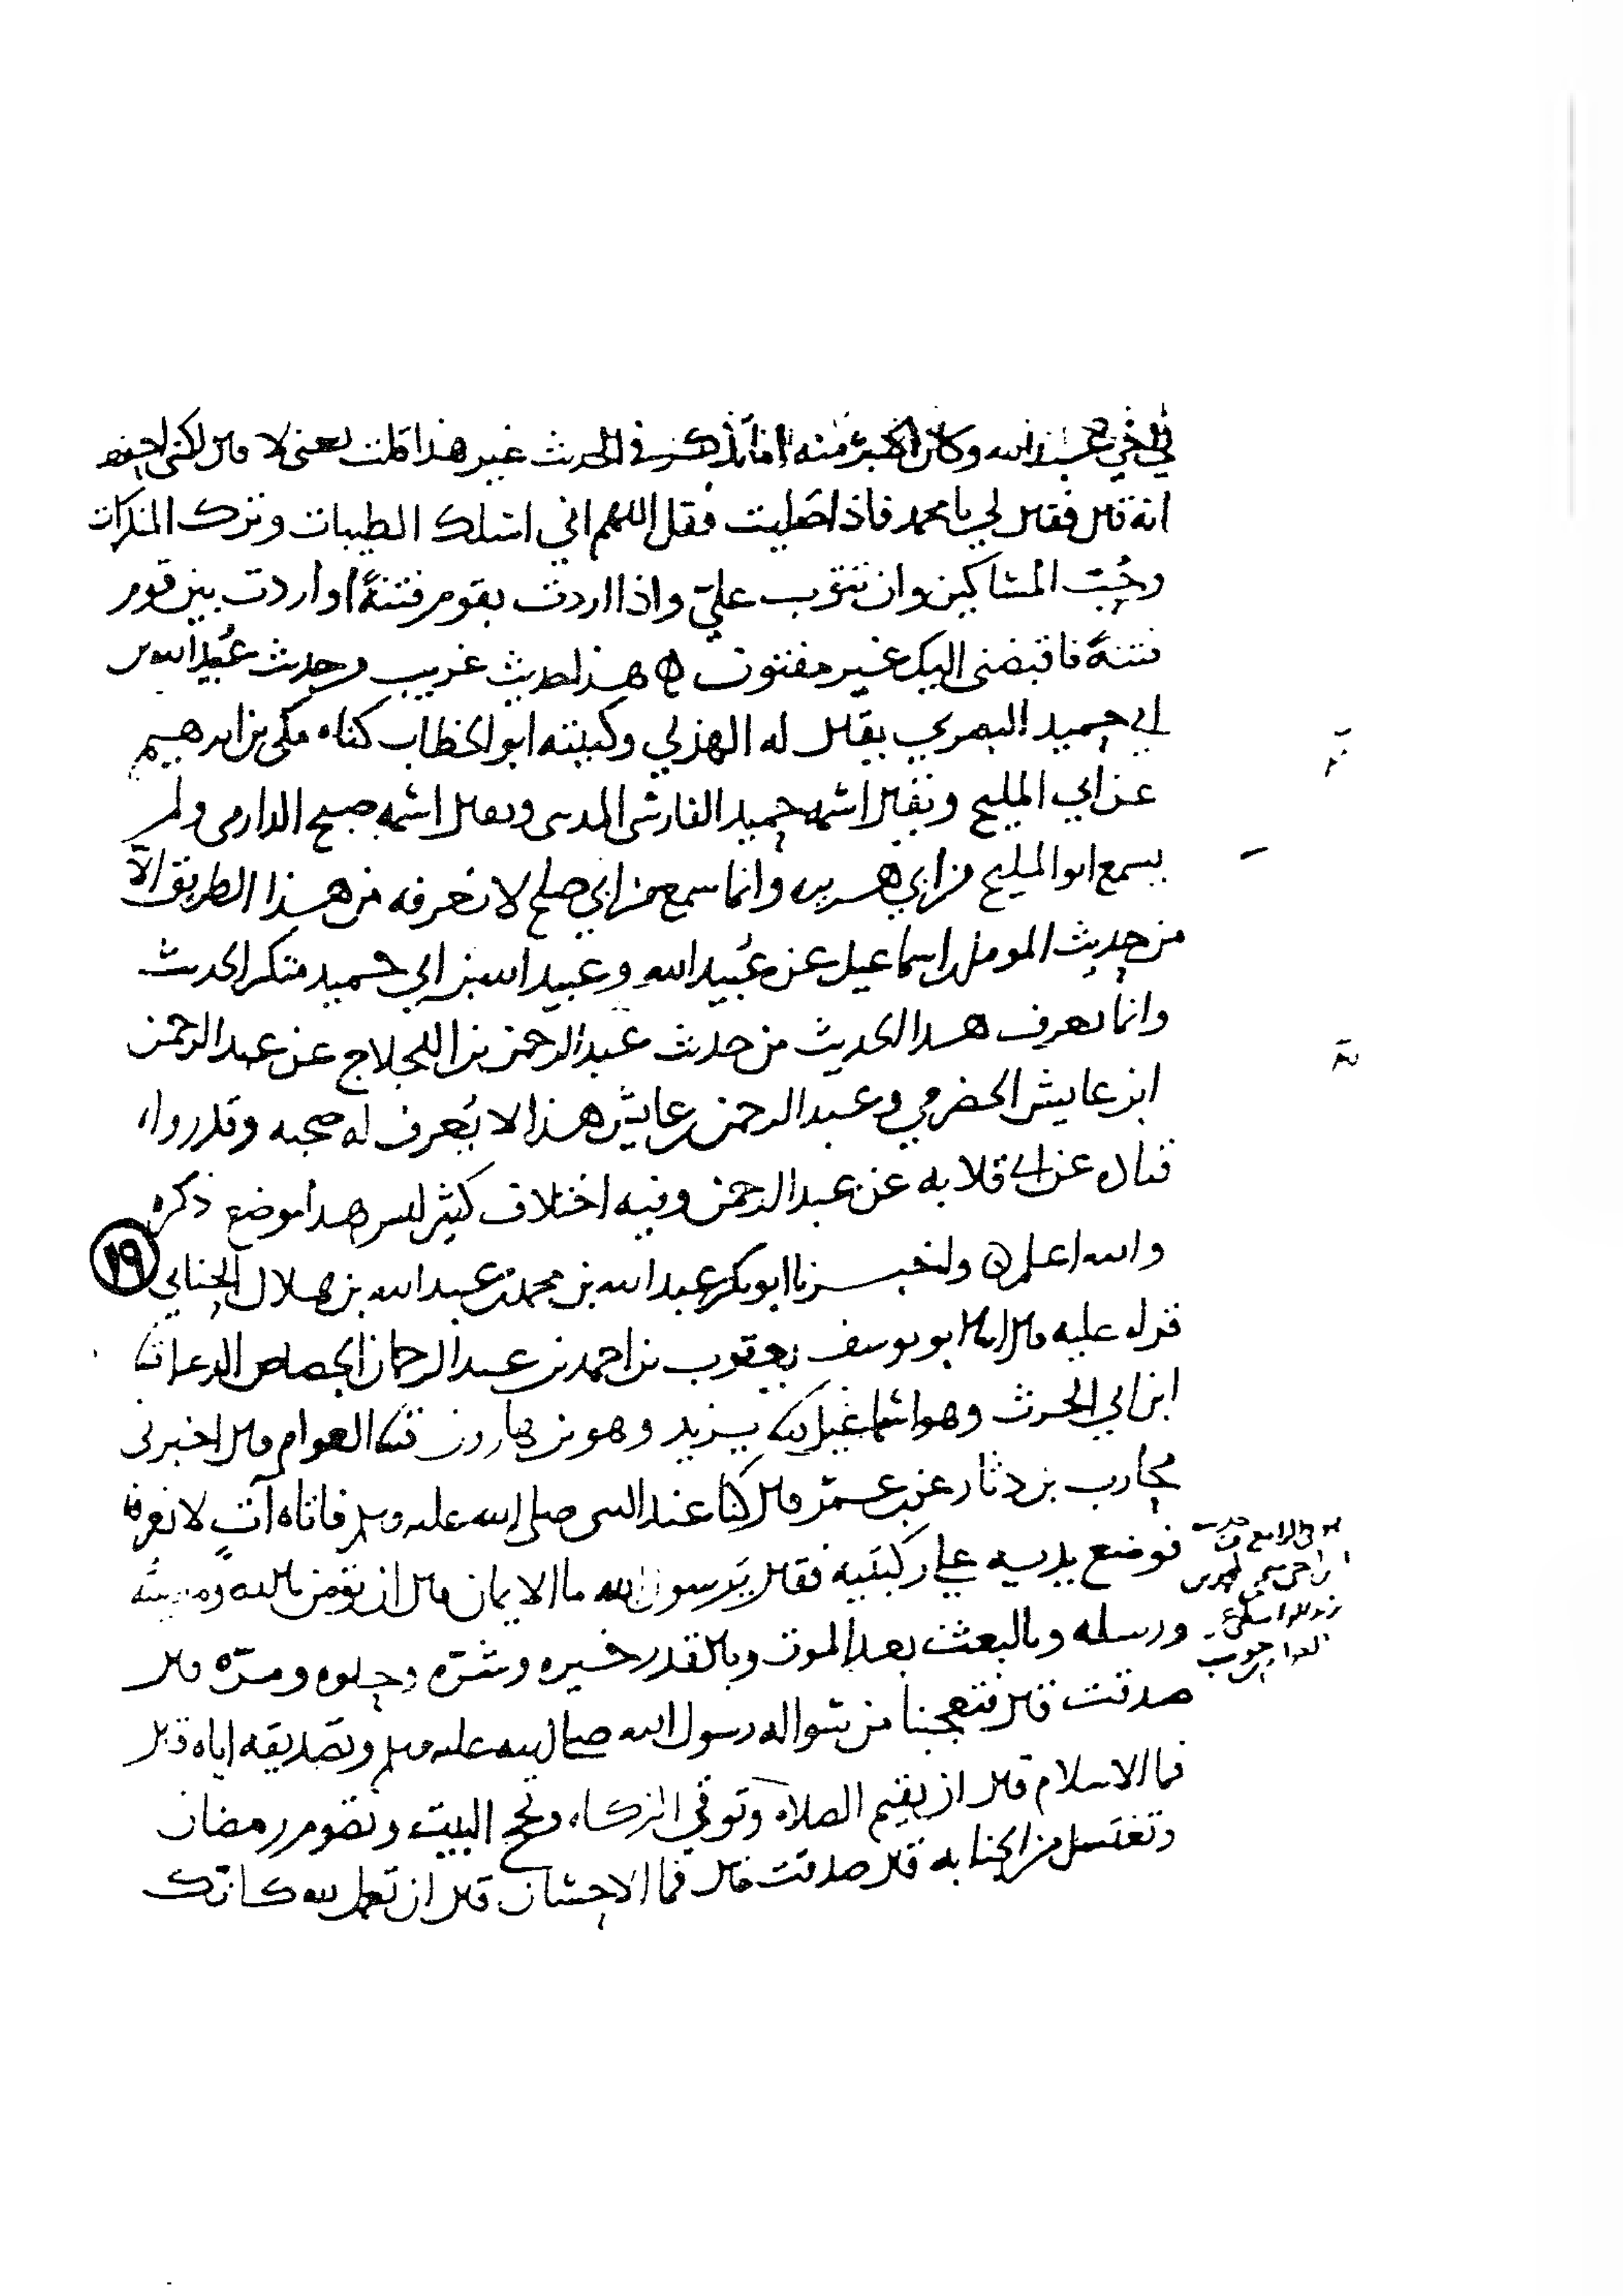 لي اخي عبيد الله وكان اكبر منه اما تذكر في الحديث غير هذا قلت يعني لا قال لكني احفظ
انه قال فقال لي يا محمد فاذا صليت فقل اللهم اني اسلك الطيبات وترك المنكرات
وحب المساكين وان تتوب علي واذا اردت بقوم فتنةً او اردت بين قوم
فتنةً فاقبضني اليك غير مفتون ه هذا حديث غريب وحديث عبيد الله بن
ابي حميد البصري يقال له الهذلي وكنيته ابو الخطاب كناه مكي بن ابرهيم
عن ابي المليح ويقال اسمه حميد الفارسي المدني ويقال اسمه صبيح الدارمي ولم
يسمع ابو المليح من ابي هريره وانما سمع من ابي صلح لا نعرفه من هذا الطريق الا
من حديث المومل بن اسماعيل عن عبيد الله وعبيد الله بن ابي حميد منكر الحديث
وانما نعرف هذا الحديث من حديث عبد الرحمن بن اللجلاج عن عبد الرحمن
ابن عايش الحضرمي وعبد الرحمن بن عايش هذا لا يُعرف له صحبه وقد رواه
قتاده عن ابي قلابه عن عبد الرحمن وفيه اختلاف كثير ليس هذا موضع ذكره
والله اعلم ه واخبرنا ابو بكر عبد الله بن محمد بن عبد الله بن هلال الحنائي
١٩
قراه عليه قال انا ابو يوسف يعقوب بن احمد بن عبد الرحمان الجصاص الدعا ثنا
ابن ابي الحرث وهو اسماعيل ثنا يزيد وهو بن هارون ثنا العوام قال اخبرني
محارب بن دثار عن بن عمر قال كنا عند النبي صلى الله عليه وسلم فاتاه آتٍ لا نعرفه
فوضع يديه على ركبتيه فقال يرسول الله ما الايمان قال ان تومن بالله وملئكته
ورسله وبالبعث بعد الموت وبالقدر خيره وشره وحلوه ومره قال
صدقت قال فتعجبنا من سواله رسول الله صلى الله عليه وسلم وتصديقه اياه قال
فما الاسلام قال ان يقيم الصلاه وتوتي الزكاه وتحج البيت وتصوم رمضان
وتغتسل من الجنابه قال صدقت قال فما الاحسان قال ان تعمل لله كانك